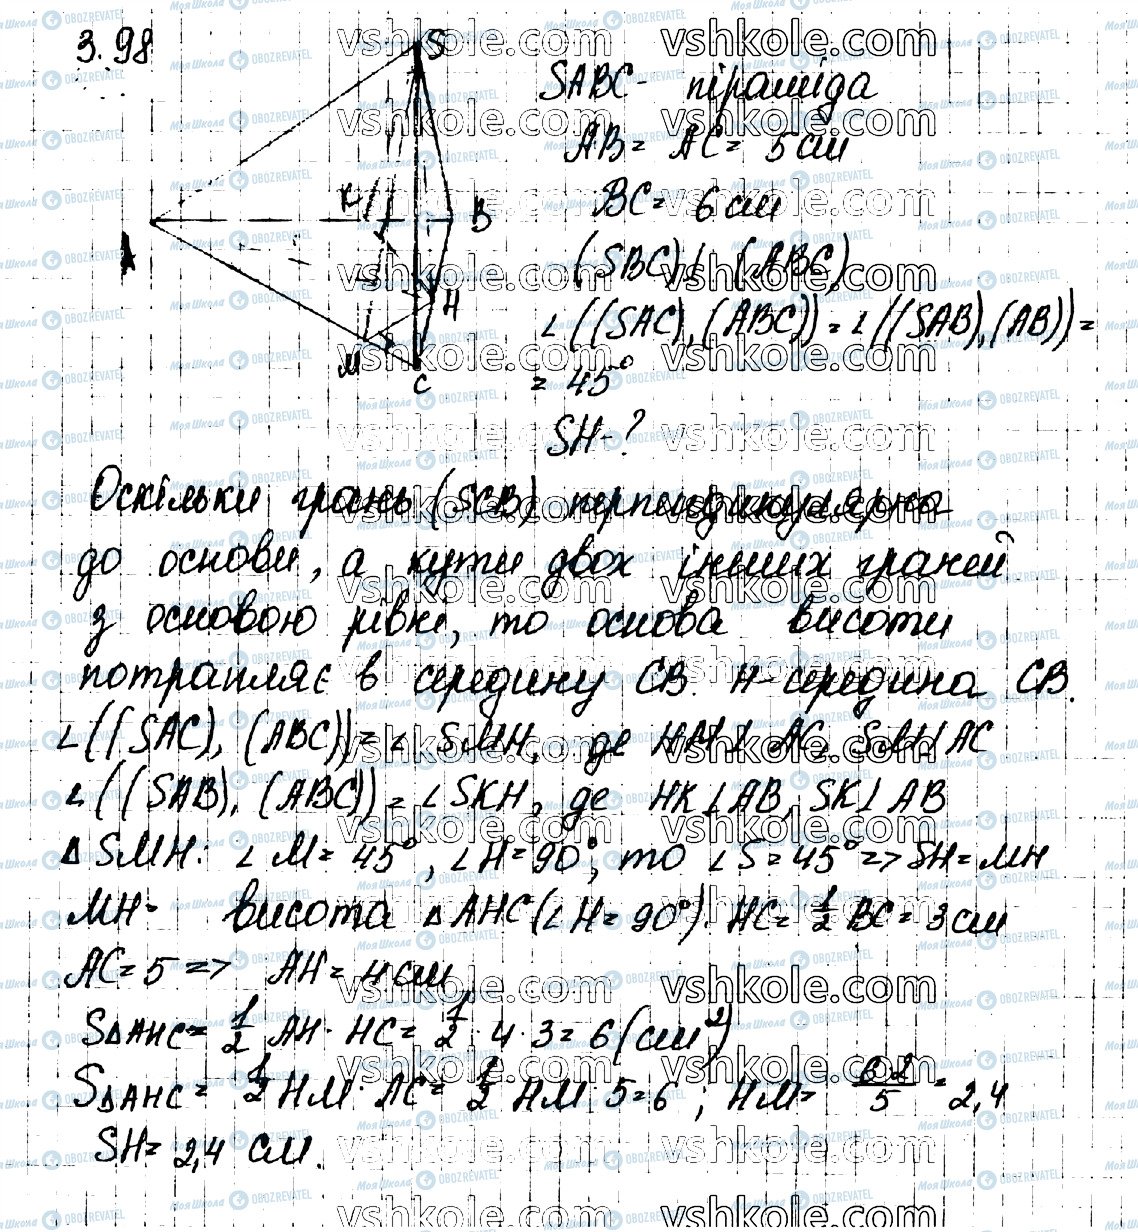 3.98
S
K
B
A
H
M
C
SABC - піраміда
AB = AC = 5 см
BC = 6 см
(SBC) ⊥ (ABC)
∠((SAC), (ABC)) = ∠((SAB), (AB)) =
= 45°
SH - ?
Оскільки грань (SCB) перпендикулярна
до основи, а кути двох інших граней
з основою рівні, то основа висоти
потрапляє в середину CB. H - середина CB.
∠((SAC), (ABC)) = ∠ SMH, де HM ⊥ AC, SM ⊥ AC
∠((SAB), (ABC)) = ∠SKH, де HK ⊥ AB, SK ⊥ AB
Δ SMH: ∠ M = 45°, ∠H = 90°, то ∠S = 45° => SH = MH
MH - висота Δ AHC (∠H = 90°). HC = 1/2 BC = 3 см
AC = 5 => AH = 4 см
SΔAHC = 1/2 AH · HC = 1/2 · 4 · 3 = 6 (см²)
SΔAHC = 1/2 HM · AC = 1/2 HM · 5 = 6 ; HM = 6·2/5 = 2,4
SH = 2,4 см.
vshkole.com
Моя Школа
OBOZREVATEL